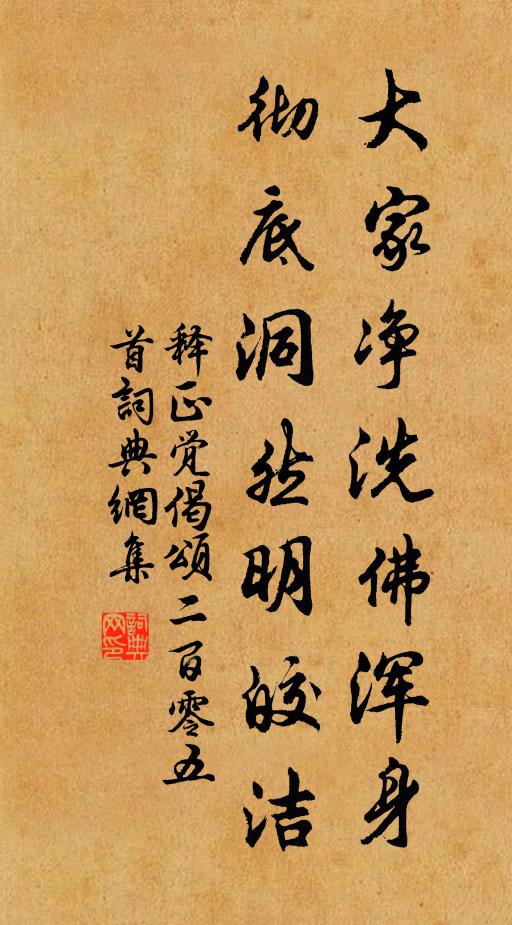 大家净洗佛浑身
彻底洞然明皎洁
释正觉偈颂二百零五
首詞典網集
詞典
网印